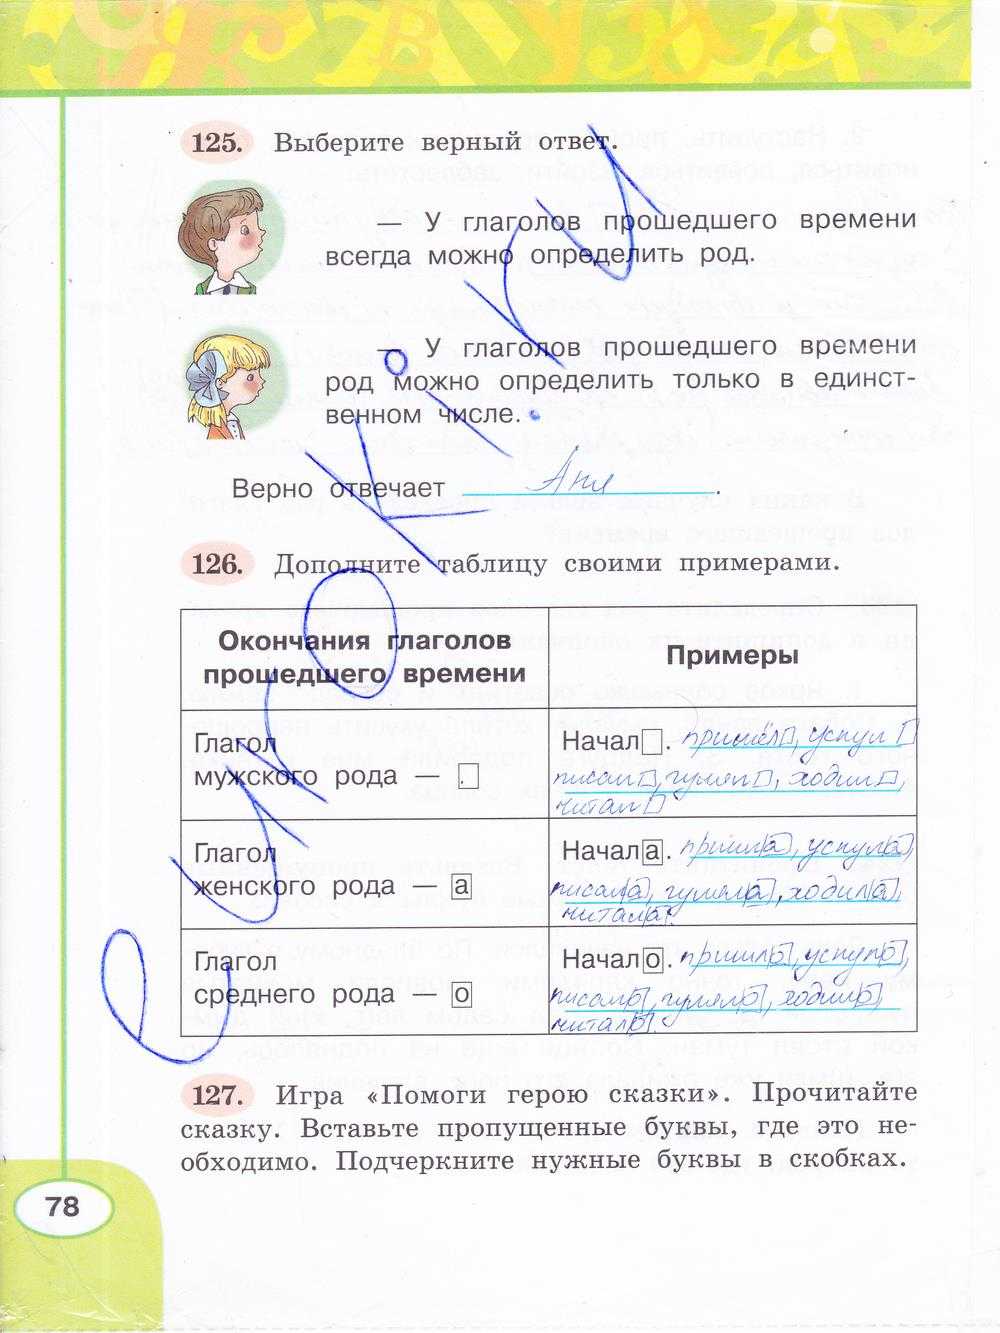 125. Выберите верный ответ.
— У глаголов прошедшего времени
всегда можно определить род.
— У глаголов прошедшего времени
род можно определить только в единст-
венном числе.
Верно отвечает Аня.
126. Дополните таблицу своими примерами.
Окончания глаголов
прошедшего времени
Примеры
Глагол
мужского рода —
Начал. пришёл, уснул
писал, гулял, ходил,
читал
Глагол
женского рода — а
Начала. пришла, уснула,
писала, гуляла, ходила,
читала.
Глагол
среднего рода — о
Начало. пришло, уснуло,
писало, гуляло, ходило,
читало.
127. Игра «Помоги герою сказки». Прочитайте
сказку. Вставьте пропущенные буквы, где это не-
обходимо. Подчеркните нужные буквы в скобках.
78
euroki.ru